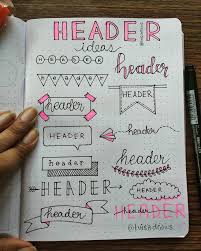 HEADER
ideas
HEADER
header
HEADER
header
HEADER
HEADER
header
header
header
HEADER
HEADER
header
HEADER
header